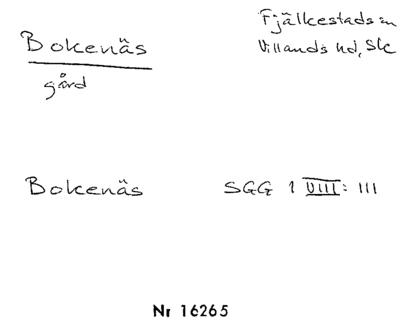 Bokenäs
gård
Fjälkestads sn
Villands hd, Sk
Bokenäs
SGG 1 VIII: III
Nr 16265